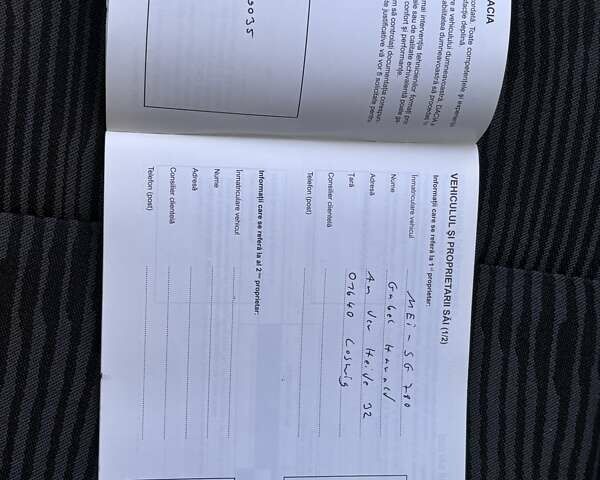 DACIA
cordată. Toate competențele și experiența
sfacție deplină.
re a vehiculului dumneavoastră, DACIA v
abilitatea dumneavoastră să procedați la
mai intervenția tehnicienilor formați pro
ale sau de calitate echivalentă poate ga
confort și performanțe.
m să controlați documentația corespun
te justificative vă vor fi solicitate pentru
3035
VEHICULUL ȘI PROPRIETARII SĂI (1/2)
Informații care se referă la 1ul proprietar:
Înmatriculare vehicul MEI-SG 780
Nume Gabel Harald
Adresă An der Heide 32
Țară 01640 Coswig
Consilier clientelă
Telefon (post)
Informații care se referă la al 2lea proprietar:
Înmatriculare vehicul
Nume
Adresă
Consilier clientelă
Telefon (post)